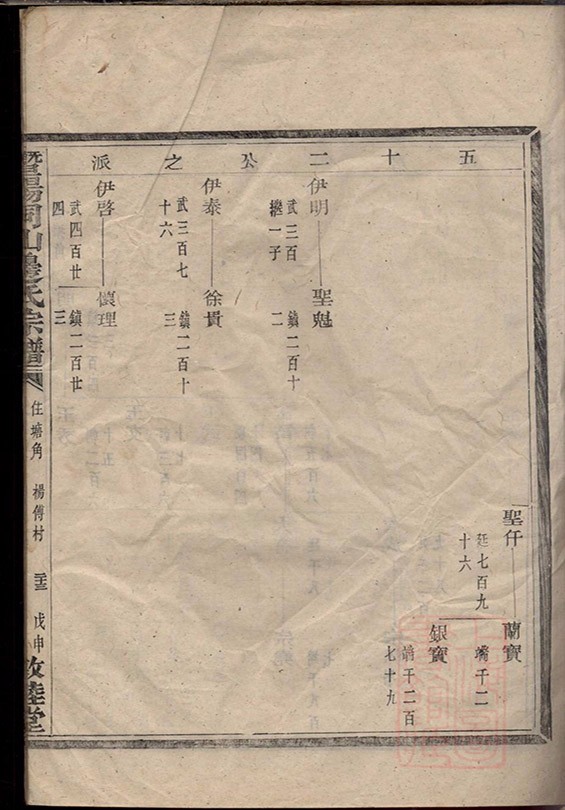 五十二公之派
聖仟
廷七百九
十六
蘭寶
端千二
銀寶
端千二百
七十九
伊明
武三百
繼一子
聖魁
鎮二百十
二
伊泰
武三百七
十六
徐貴
鎮二百十
三
伊啓
武四百廿
四
懷理
鎮二百廿
三
暨陽同山邊氏宗譜
住塘角 楊傅村
戊申
敦睦堂